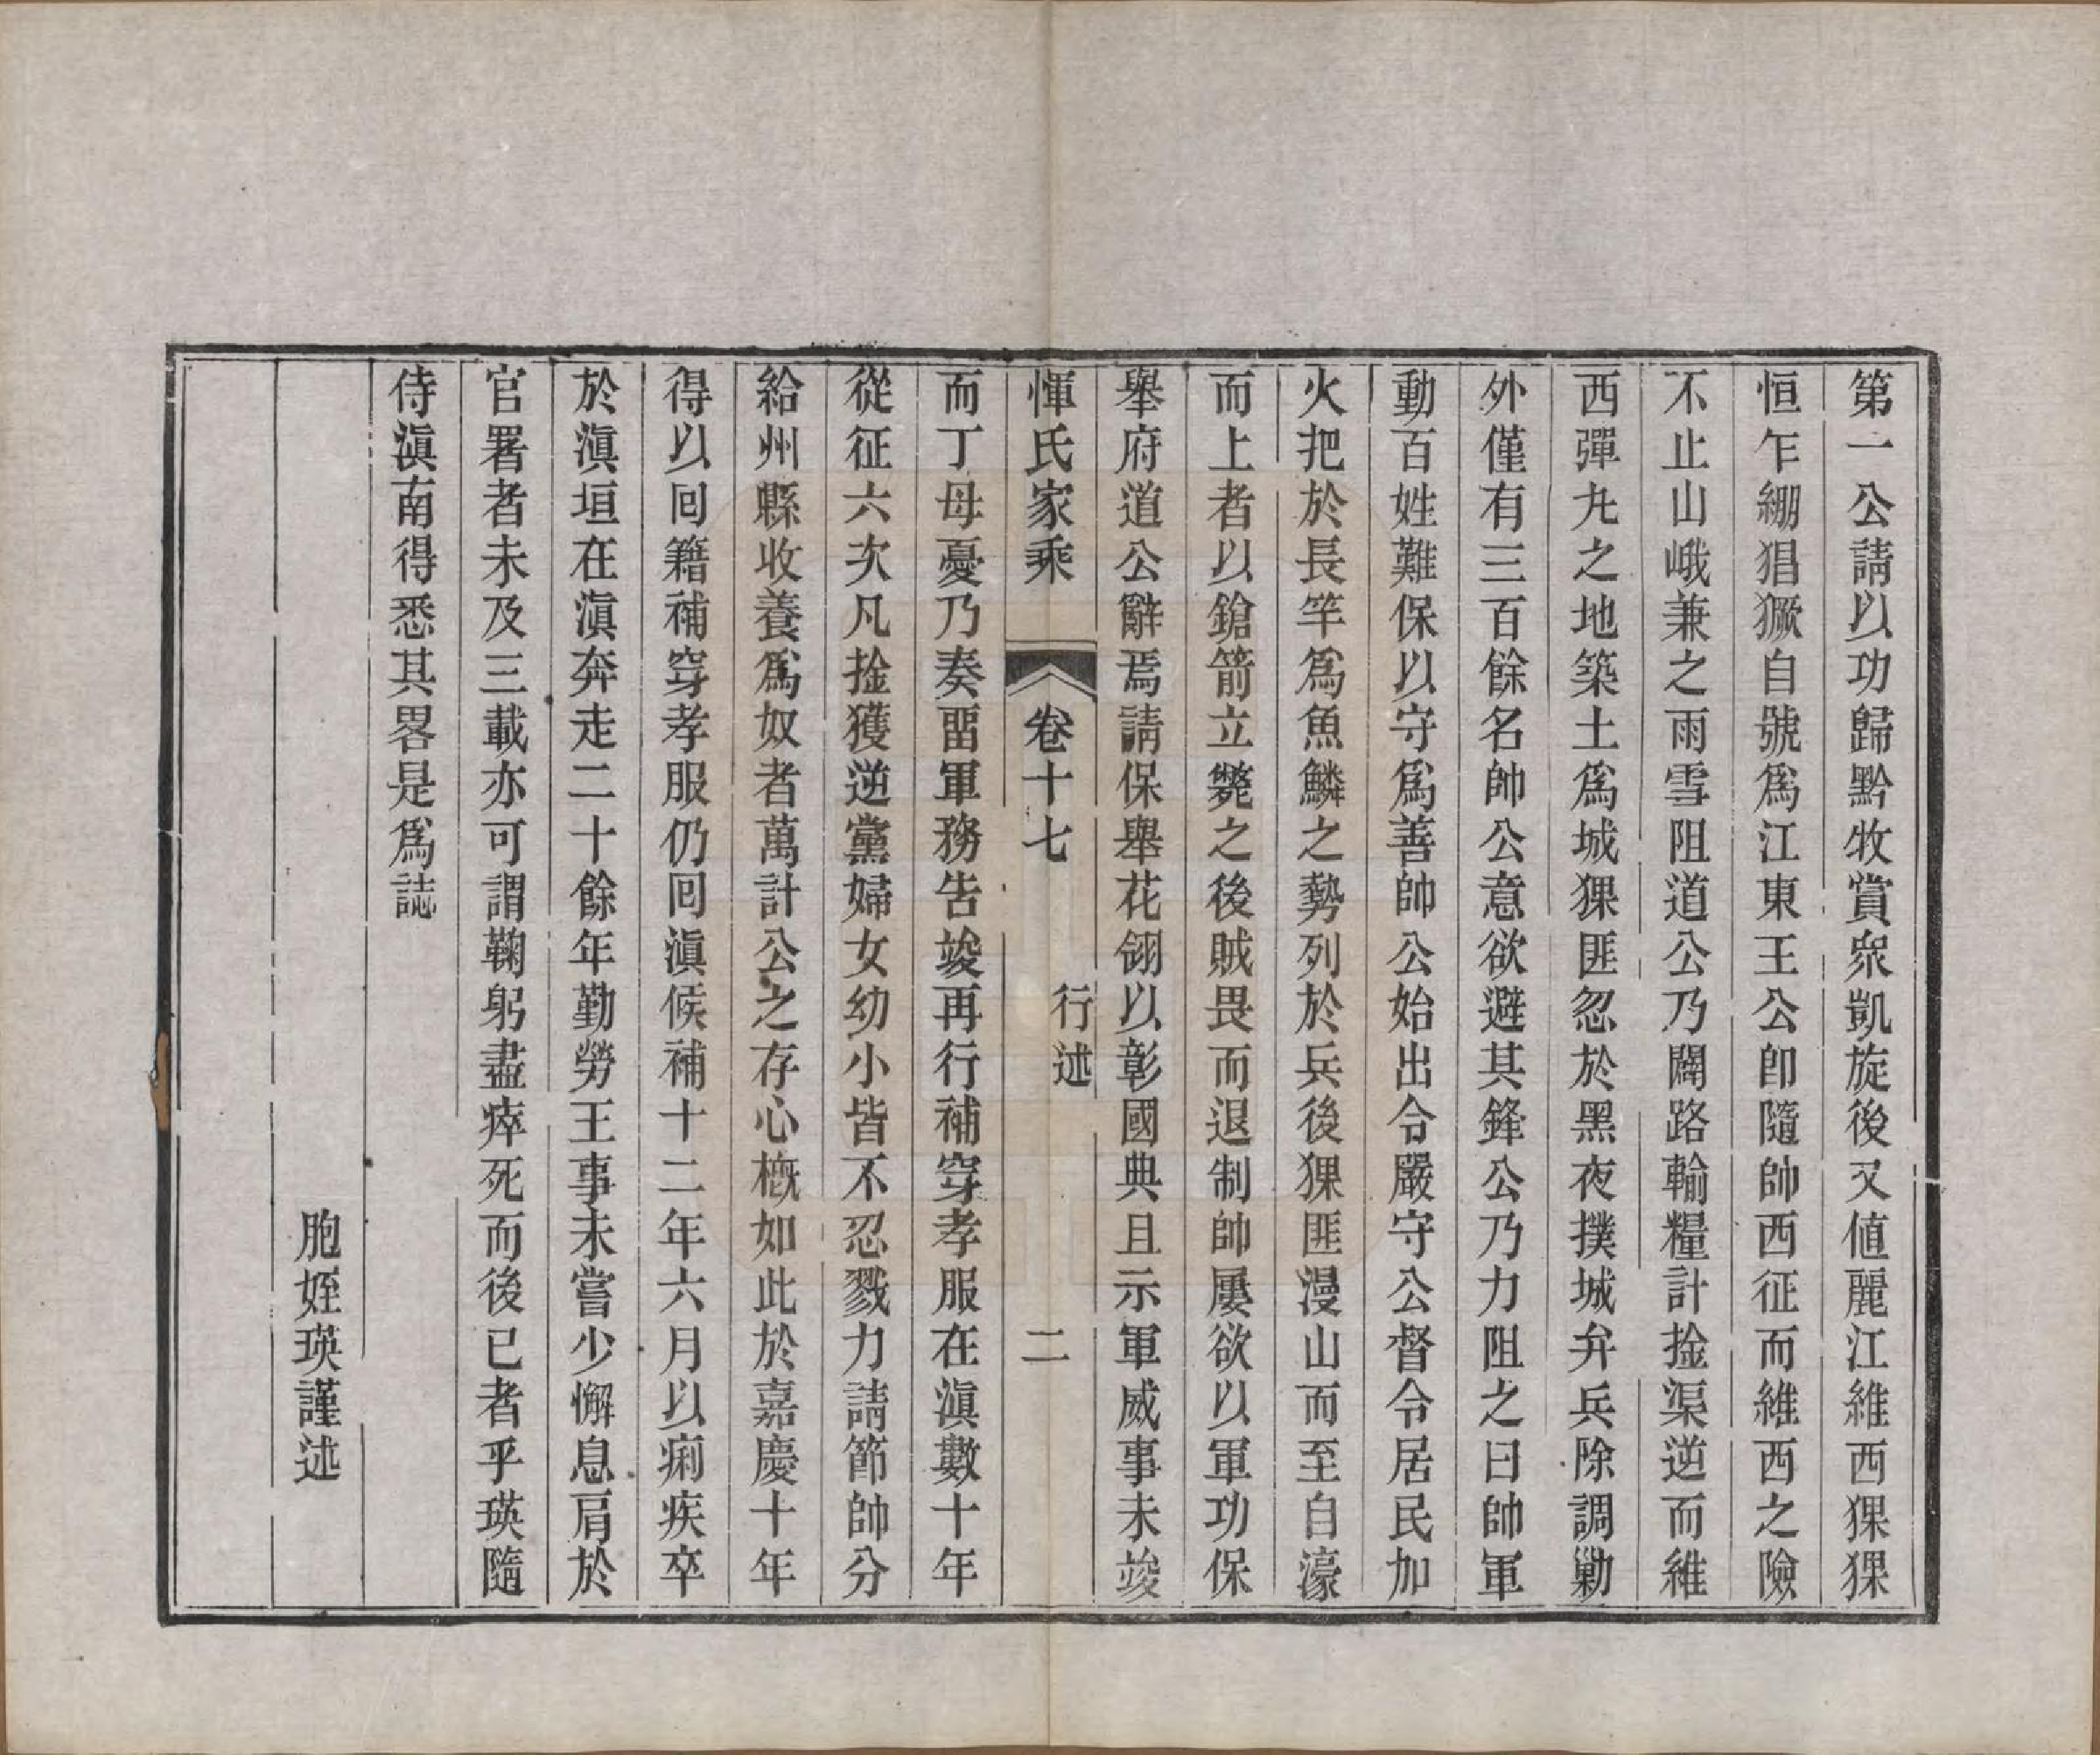 第一公請以功歸黔牧賞衆凱旋後又値麗江維西猓猓
恒乍繃猖獗自號爲江東王公卽隨帥西征而維西之險
不止山峨兼之雨雪阻道公乃闢路輸糧計捦渠逆而維
西彈丸之地築土爲城猓匪忽於黑夜撲城弁兵除調勦
外僅有三百餘名帥公意欲避其鋒公乃力阻之曰帥軍
動百姓難保以守爲善帥公始出令嚴守公督令居民加
火把於長竿爲魚鱗之勢列於兵後猓匪漫山而至自濠
而上者以鎗箭立斃之後賊畏而退制帥屢欲以軍功保
舉府道公辭焉請保舉花翎以彰國典且示軍威事未竣
惲氏家乘 卷十七 行述 二
而丁母憂乃奏畱軍務告竣再行補穿孝服在滇數十年
從征六次凡捦獲逆黨婦女幼小皆不忍戮力請節帥分
給州縣收養爲奴者萬計公之存心槪如此於嘉慶十年
得以回籍補穿孝服仍回滇候補十二年六月以痢疾卒
於滇垣在滇奔走二十餘年勤勞王事未嘗少懈息肩於
官署者未及三載亦可謂鞠躬盡瘁死而後已者乎瑛隨
侍滇南得悉其畧是爲誌
胞姪瑛謹述